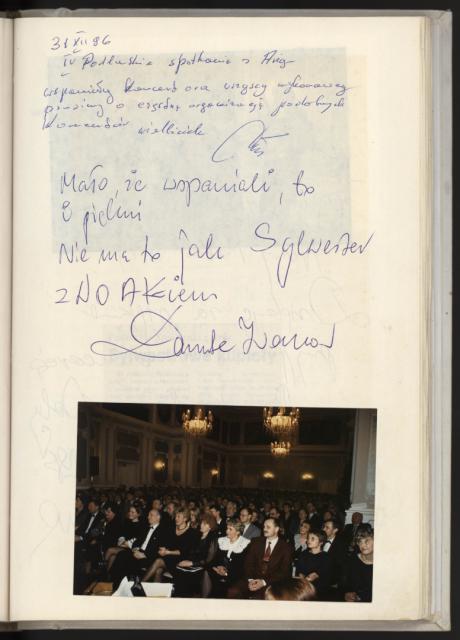 31 XII 96
IV Podlaskie spotkanie z
wspaniały koncert oraz wszyscy wykonawcy
prosimy o częstszą organizację podobnych
koncertów wielbiciele
Mało, że wspaniali, to
i piękni
Nie ma to jak Sylwester
z NOAKiem
Danuta Iwanow